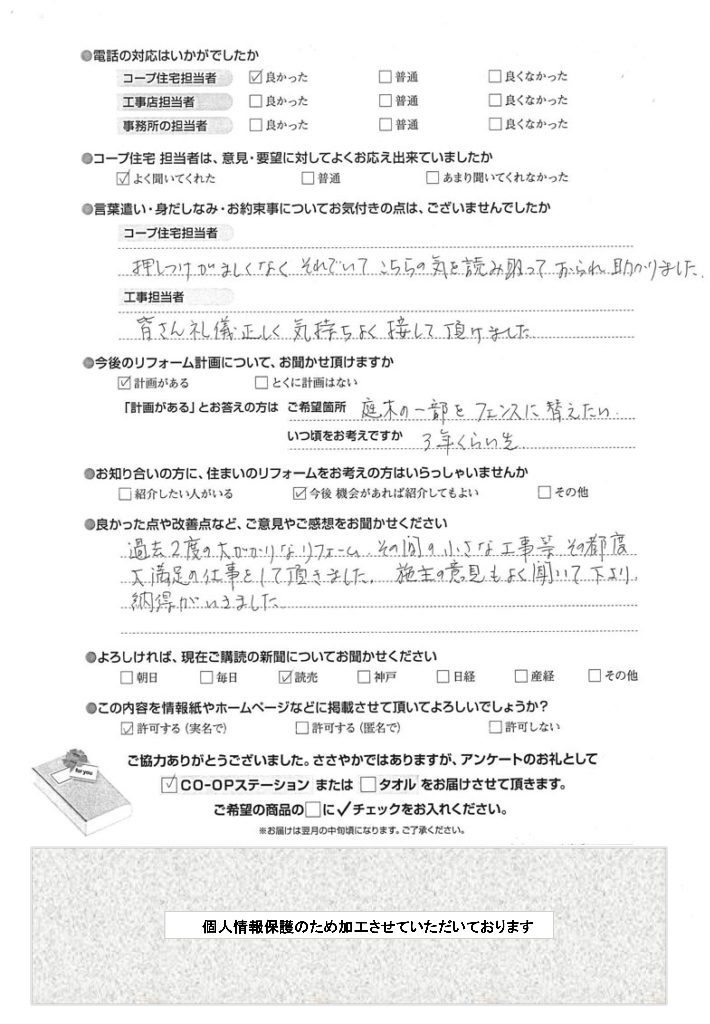 ●電話の対応はいかがでしたか
コープ住宅担当者 ☑良かった □普通 □良くなかった
工事店担当者 □良かった □普通 □良くなかった
事務所の担当者 □良かった □普通 □良くなかった
●コープ住宅 担当者は、意見・要望に対してよくお応え出来ていましたか
☑よく聞いてくれた □普通 □あまり聞いてくれなかった
●言葉遣い・身だしなみ・お約束事についてお気付きの点は、ございませんでしたか
コープ住宅担当者
押しつけがましくなく それでいて こちらの気を読み取って おられ 助かりました.
工事担当者
皆さん礼儀正しく 気持ちよく 接して頂けました
●今後のリフォーム計画について、お聞かせ頂けますか
☑計画がある □とくに計画はない
「計画がある」とお答えの方は ご希望箇所 庭木の一部を フェンスに替えたい.
いつ頃をお考えですか 3年くらい先.
●お知り合いの方に、住まいのリフォームをお考えの方はいらっしゃいませんか
□紹介したい人がいる ☑今後 機会があれば紹介してもよい □その他
●良かった点や改善点など、ご意見やご感想をお聞かせください
過去2度の大がかりなリフォーム、その間の小さな工事等 その都度
大満足の仕事をして頂きました. 施主の意見もよく聞いて下より.
納得がいきました
●よろしければ、現在ご購読の新聞についてお聞かせください
□朝日 □毎日 ☑読売 □神戸 □日経 □産経 □その他
●この内容を情報紙やホームページなどに掲載させて頂いてよろしいでしょうか?
☑許可する(実名で) □許可する(匿名で) □許可しない
for you
ご協力ありがとうございました。ささやかではありますが、アンケートのお礼として
☑CO-OPステーション または □タオル をお届けさせて頂きます。
ご希望の商品の□に✓チェックをお入れください。
※お届けは翌月の中旬頃になります。ご了承ください。
個人情報保護のため加工させていただいております